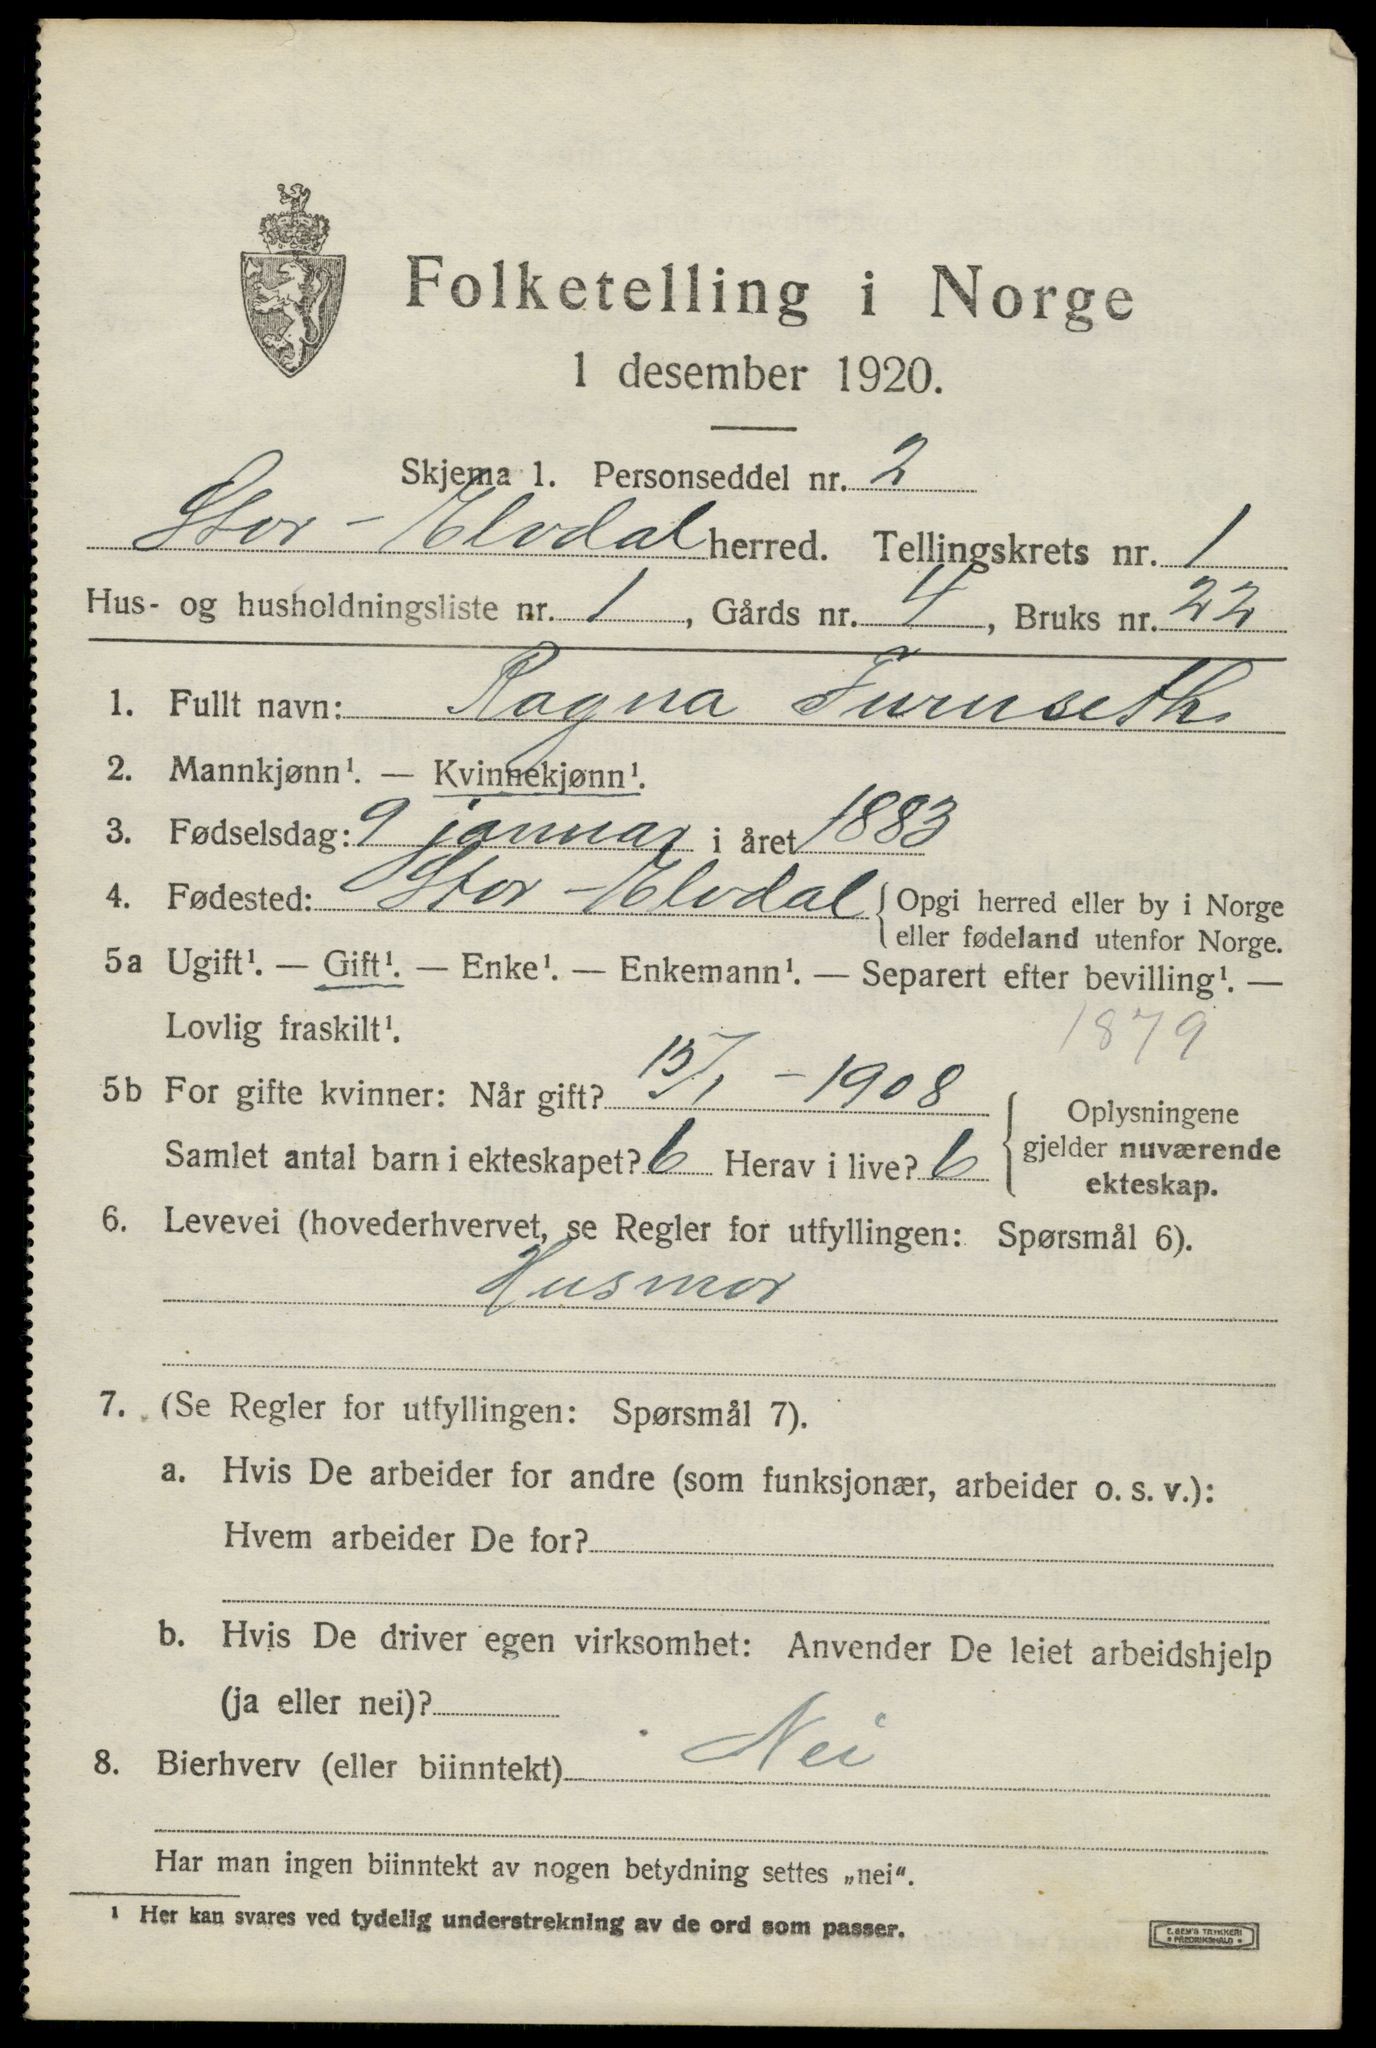 Folketelling i Norge
1 desember 1920.
Skjema 1. Personseddel nr. 2
Stor-Elvdal herred. Tellingskrets nr. 1
Hus- og husholdningsliste nr. 1, Gårds nr. 4, Bruks nr. 22
1. Fullt navn: Ragna Furuseth
2. Mannkjønn¹. — Kvinnekjønn¹.
3. Fødselsdag: 9 januar i året 1883
4. Fødested: Stor-Elvdal { Opgi herred eller by i Norge
eller fødeland utenfor Norge.
5a Ugift¹. — Gift¹. — Enke¹. — Enkemann¹. — Separert efter bevilling¹. —
Lovlig fraskilt¹.
1879
5b For gifte kvinner: Når gift? 15/1 - 1908
Samlet antal barn i ekteskapet? 6 Herav i live? 6
{ Oplysningene
gjelder nuværende
ekteskap.
6. Levevei (hovederhvervet, se Regler for utfyllingen: Spørsmål 6).
Husmor
7. (Se Regler for utfyllingen: Spørsmål 7).
a. Hvis De arbeider for andre (som funksjonær, arbeider o. s. v.):
Hvem arbeider De for?
b. Hvis De driver egen virksomhet: Anvender De leiet arbeidshjelp
(ja eller nei)?
8. Bierhverv (eller biinntekt) Nei
Har man ingen biinntekt av nogen betydning settes „nei“.
¹ Her kan svares ved tydelig understrekning av de ord som passer.
E. SEM'S TRYKKERI
• FREDRIKSHALD •